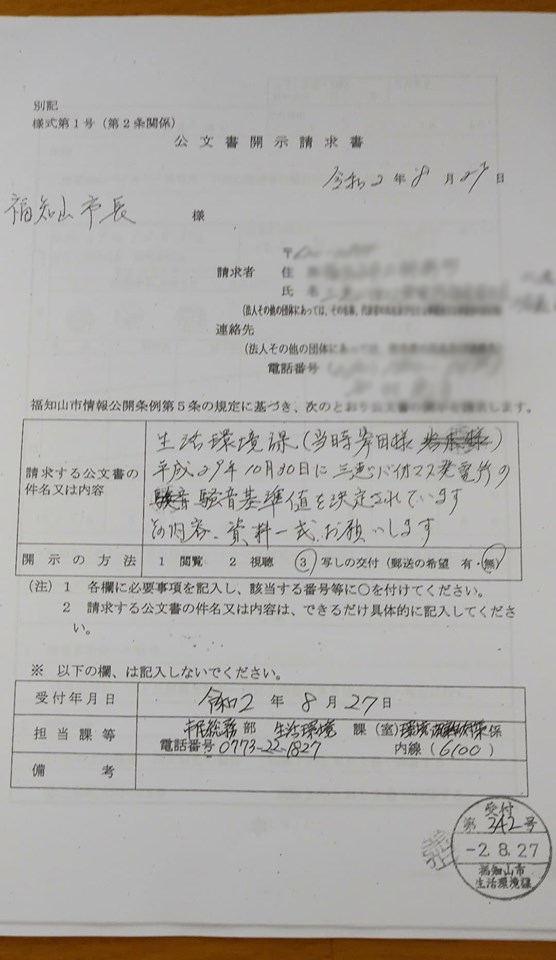 別記
様式第1号(第2条関係)
公文書開示請求書
令和2年8月27日
福知山市長 様
〒
請求者 住
氏名
(法人その他の団体にあっては、その名称、代表者の
連絡先
(法人その他の団体にあっては、
電話番号
福知山市情報公開条例第5条の規定に基づき、次のとおり公文書の開示を請求します。
請求する公文書の件名又は内容
生活環境課(当時寄田様
平成29年10月30日に三恵バイオマス発電所の
騒音基準値を決定されています
その内容、資料一式、お願いします
開示の方法 1 閲覧 2 視聴 3 写しの交付(郵送の希望 有・無)
(注) 1 各欄に必要事項を記入し、該当する番号等に○を付けてください。
2 請求する公文書の件名又は内容は、できるだけ具体的に記入してくださ
い。
※ 以下の欄、は記入しないでください。
受付年月日 令和2年8月27日
担当課等 市民総務部 生活環境課(室) 係
電話番号 0773-22-1827 内線(6100)
備考
受付
第342号
-2.8.27
福知山市
生活環境課